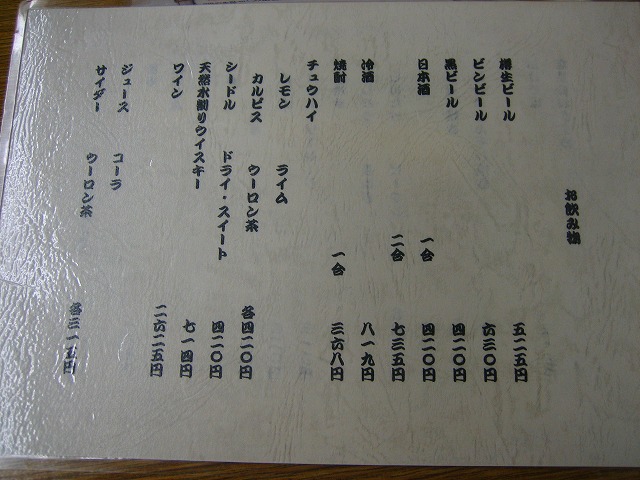 お飲み物
樽生ビール 五二五円
ビンビール 六三〇円
黒ビール 四二〇円
日本酒 一合 四二〇円
二合 七三五円
冷酒 八一九円
焼酎 一合 三六八円
チュウハイ
レモン ライム
カルピス ウーロン茶 各四二〇円
シードル ドライ・スイート 四二〇円
天然水割りウイスキー 七一四円
ワイン 二六二五円
ジュース コーラ
サイダー ウーロン茶 各三一五円